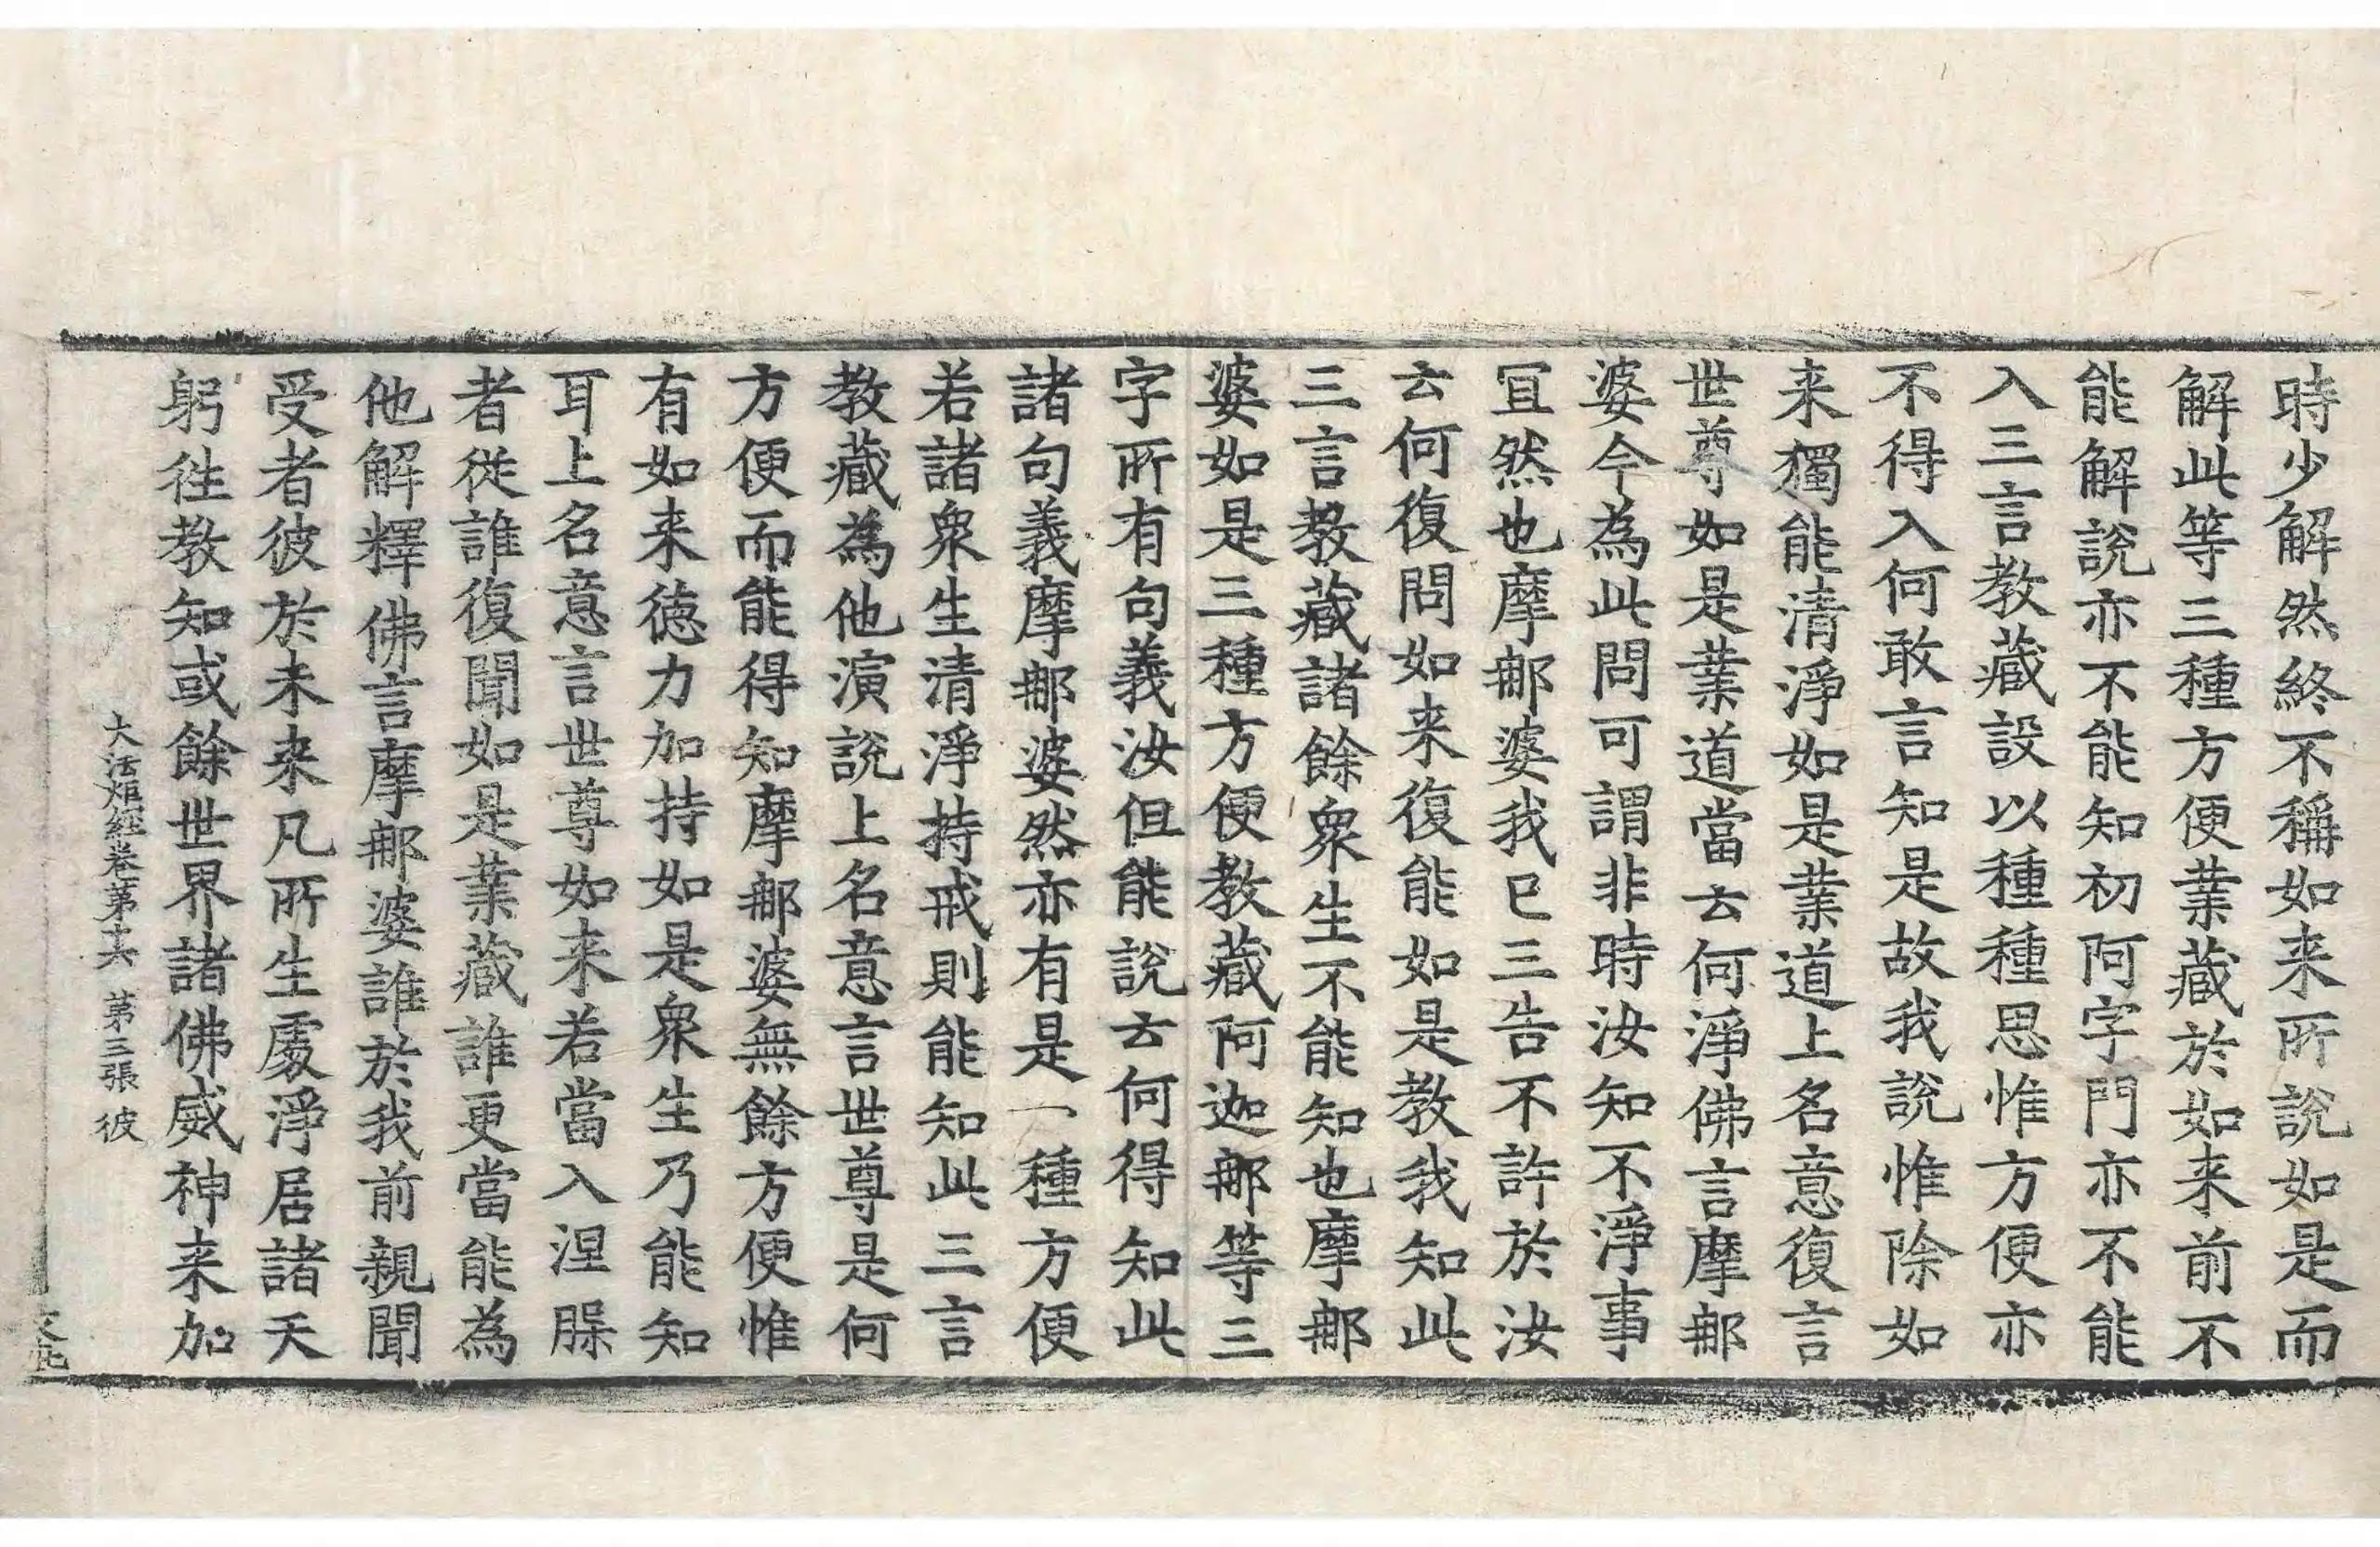 時少解然終不稱如来所說如是而
解此等三種方便業藏於如来前不
能解說亦不能知初阿字門亦不能
入三言教藏設以種種思惟方便亦
不得入何敢言知是故我說惟除如
来獨能清淨如是業道上名意復言
世尊如是業道當云何淨佛言摩郍
婆今為此問可謂非時汝知不淨事
冝然也摩郍婆我已三告不許於汝
云何復問如来復能如是教我知此
三言教藏諸餘衆生不能知也摩郍
婆如是三種方便教藏阿迦郍等三
字所有句義汝但能說云何得知此
諸句義摩郍婆然亦有是一種方便
若諸衆生清淨持戒則能知此三言
教藏為他演說上名意言世尊是何
方便而能得知摩郍婆無餘方便惟
有如来德力加持如是衆生乃能知
耳上名意言世尊如来若當入涅槃
者從誰復聞如是業藏誰更當能為
他解釋佛言摩郍婆誰於我前親聞
受者彼於未来凡所生處淨居諸天
躬往教知或餘世界諸佛威神来加
大法炬經卷第十六 第三張 彼